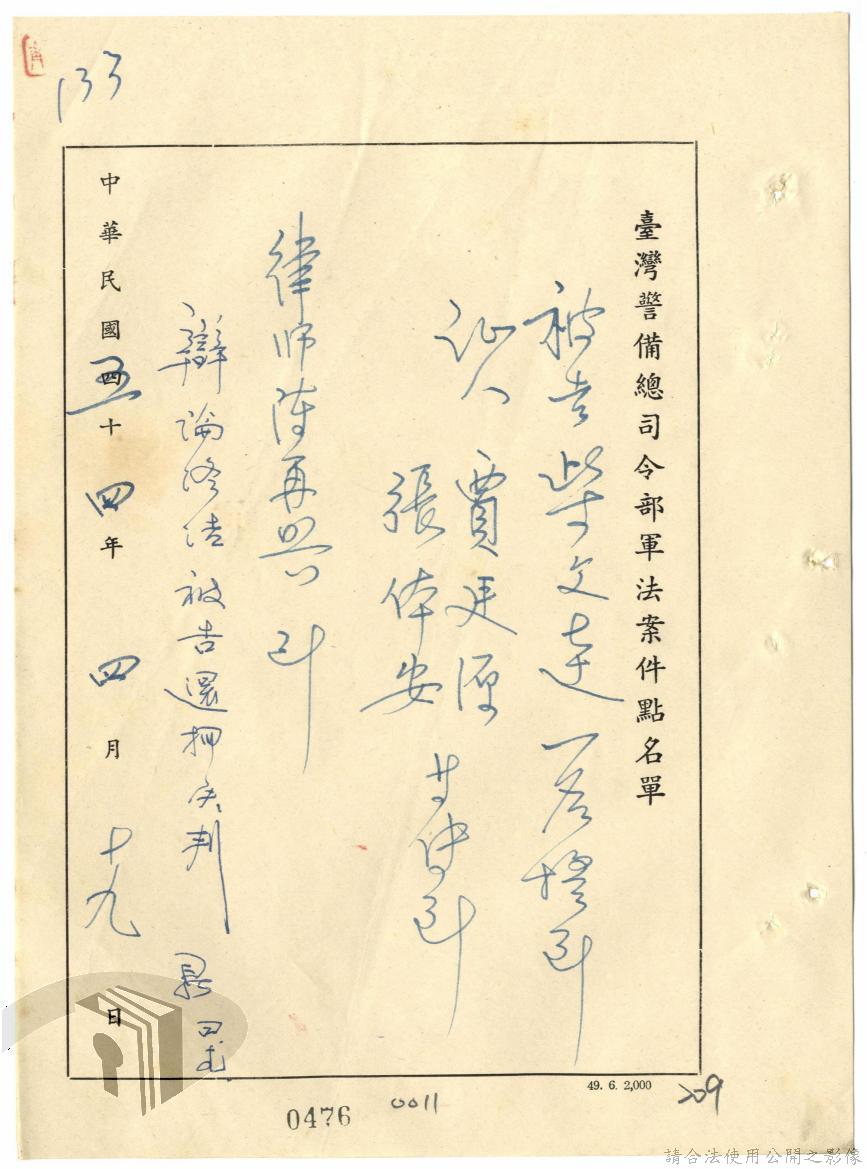 133
臺灣警備總司令部軍法案件點名單
被告柴文達一名提到
証人
賈廷
張体安
傳到
律师陈再兴到
辯論終結被告還押候判
中華民國五四十四年四月十九日
49. 6. 2,000
209
0476
0011
請合法使用公開之影像